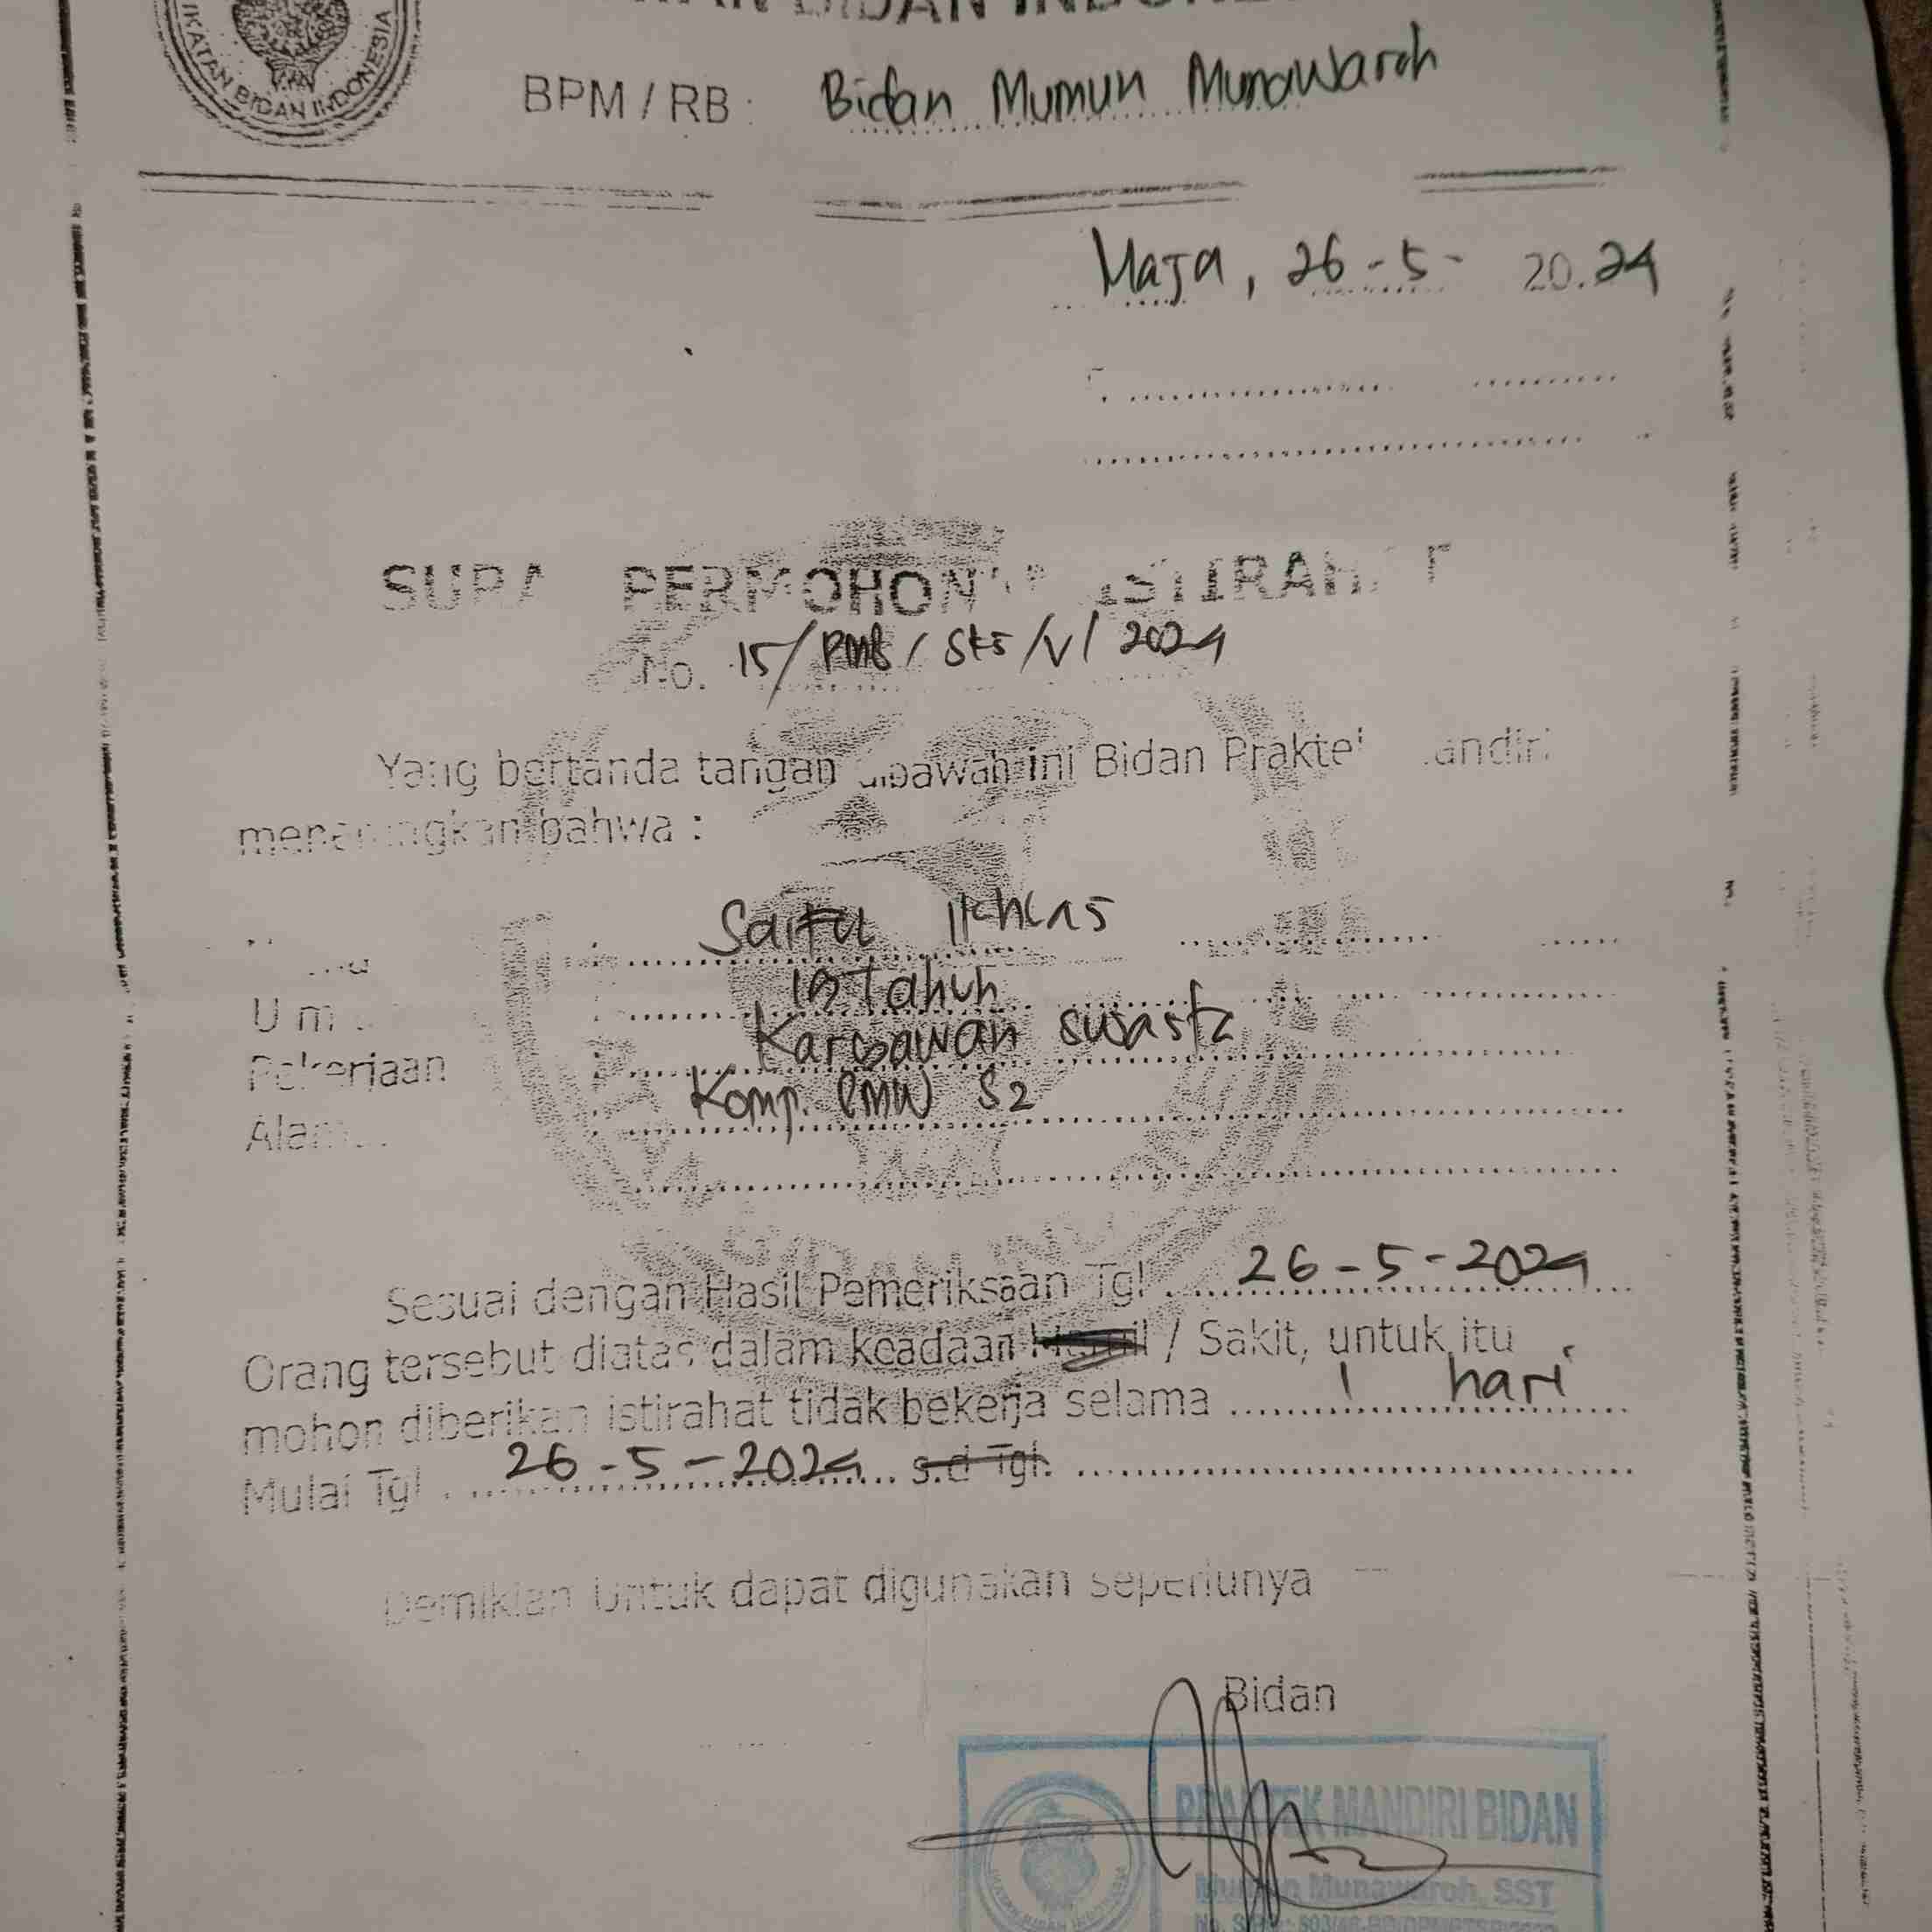 IKATAN BIDAN INDONESIA
BIDAN
BPM / RB : Bidan Mumun Munawaroh
Maja, 26-5- 20.24
SURA PERMOHON ISTIRAHAT
No. 15/PMB/SKS/V/2024
Yang bertanda tangan dibawah ini Bidan Praktek andiri
menerangkan bahwa :
: Saiful Ikhlas
Um : Tahun
Pekerjaan : Karyawan swasta
Alam : Komp. PMW S2
Sesuai dengan Hasil Pemeriksaan Tgl. 26-5-2024
Orang tersebut diatas dalam keadaan / Sakit, untuk itu
mohon diberikan istirahat tidak bekerja selama 1 hari
Mulai Tgl. 26-5-2024 s.d Tgl.
Demikian Untuk dapat digunakan seperlunya
Bidan
PRAKTEK MANDIRI BIDAN
Mumun Munawaroh, SST